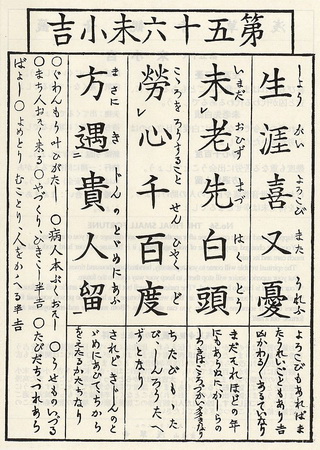 第五十六未小吉
生涯喜又憂
しよう がい よろこび また うれふ
よろこびもあればま
たうれいごともあり吉
凶かわる〴〵あるていなり
未老先白頭
いまだ おひず まづ はく とう
まだそれほどの年
にもあらぬにかしらの
しろきはこころづかい多きなり
勞心千百度
こゝろをろうすること せん ひやく ど
ちたびもゝた
び、しんろうたへ
ずとなり
方遇貴人留
まさに き じんのとゞめにあふ
されどきじんのと
ゞめにあひてちから
をえたるかたちなり
○ぐわんもう叶ひがたし ○病人本ぷくおそし ○うせものいづる
○まち人おそく来る ○やづくりひきこし半吉 ○たびだちつれあら
ばよし ○よめとりむことり人をかゝへる半吉